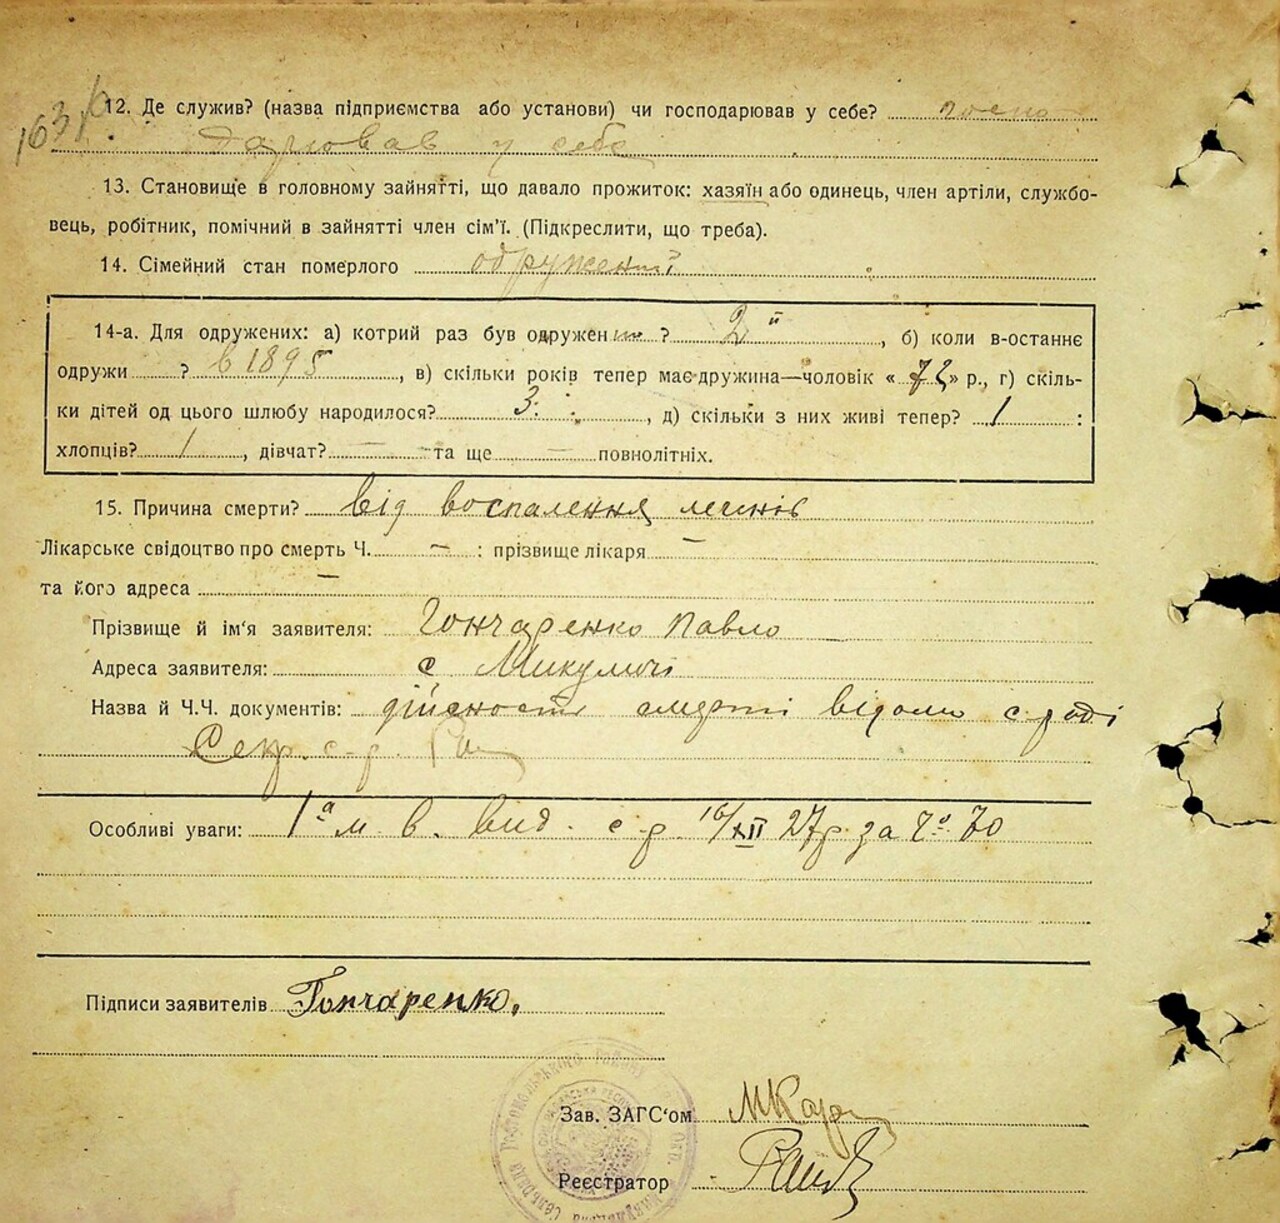 12. Де служив? (назва підприємства або установи) чи господарював у себе? госпо
дарював у себе
13. Становище в головному зайнятті, що давало прожиток: хазяїн або одинець, член артіли, службо-
вець, робітник, помічний в зайнятті член сім'ї. (Підкреслити, що треба).
14. Сімейний стан померлого одружений
14-а. Для одружених: а) котрий раз був одружен ? 2 й, б) коли в-останнє
одружи ? в 1895, в) скільки років тепер має дружина—чоловік « » р., г) скіль-
ки дітей од цього шлюбу народилося? 3, д) скільки з них живі тепер? 1 :
хлопців? 1, дівчат? — та ще — повнолітніх.
15. Причина смерти? від воспалення легенів
Лікарське свідоцтво про смерть Ч. — : прізвище лікаря —
та його адреса —
Прізвище й ім'я заявителя: Гончаренко Павло
Адреса заявителя: с Микуличі
Назва й Ч.Ч. документів: дійсность смерті відомо с раді
Секр. с. р.
Особливі уваги: 1а м. в. вид. с р. 16/XII 27р за 70
Підписи заявителів Гончаренко.
Зав. ЗАГС'ом
Реєстратор